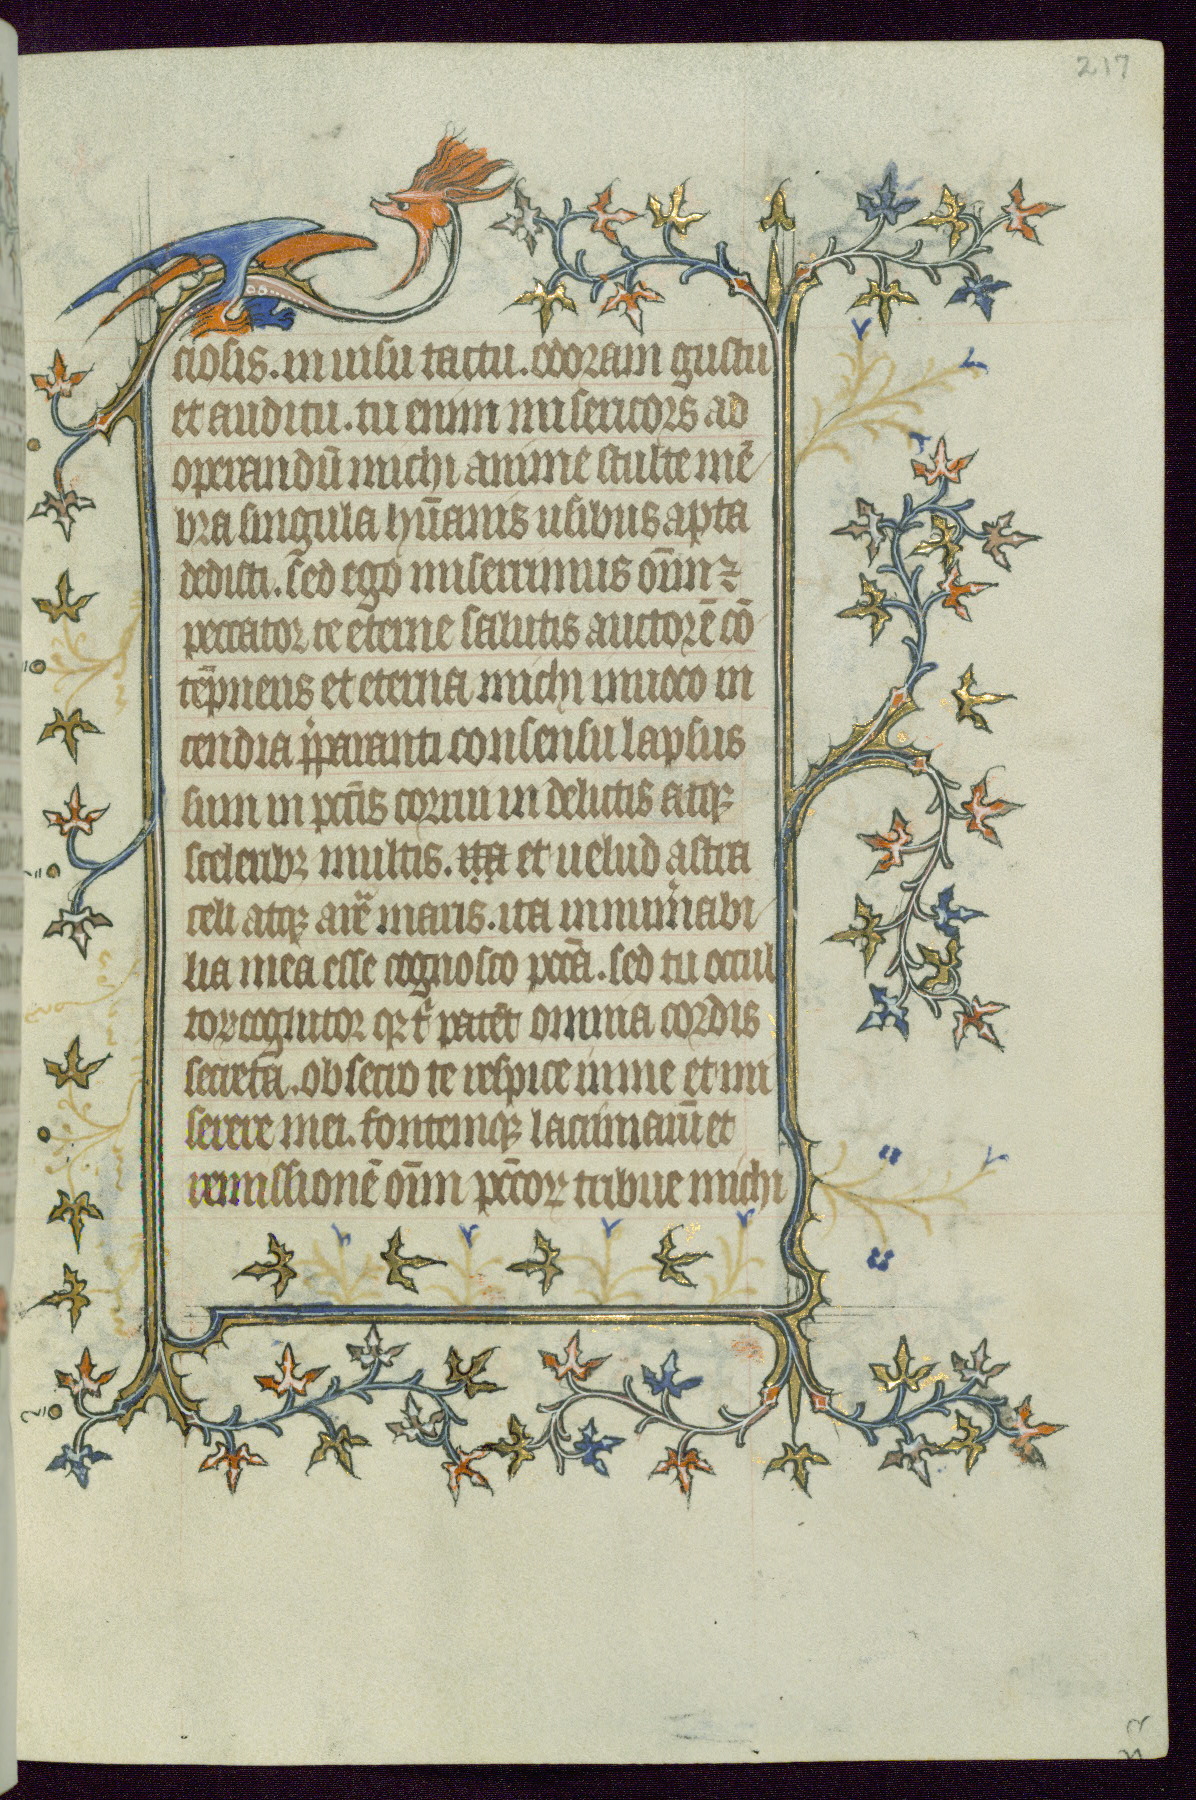 217
ciosis. in uisu tactu. odoram gustu
et auditu. tu enim misericors ad
operandū michi anime stulte mē
bra singula hūanis usibus apta
dedisti. sed ego miserrimus oīm
peccator te eterne salutis auctorē cō
tēpnens et eterna michi iniuoco in
cendia p̄paranti consensu lapsus
sum in pctīs corrui in delictis atq;
sceleribꝫ multis. ita et uelud astra
celi atqꝫ arē maris. ita innum̄abi
lia mea esse cognosco pctā. sed tu occul
tor cognitor qr t' patēt omnia cordis
secreta. obsecro te respice in me et mi
serere mei. fontemqꝫ lacrimaꝝ et
remissionē oīm pctōꝝ tribue michi